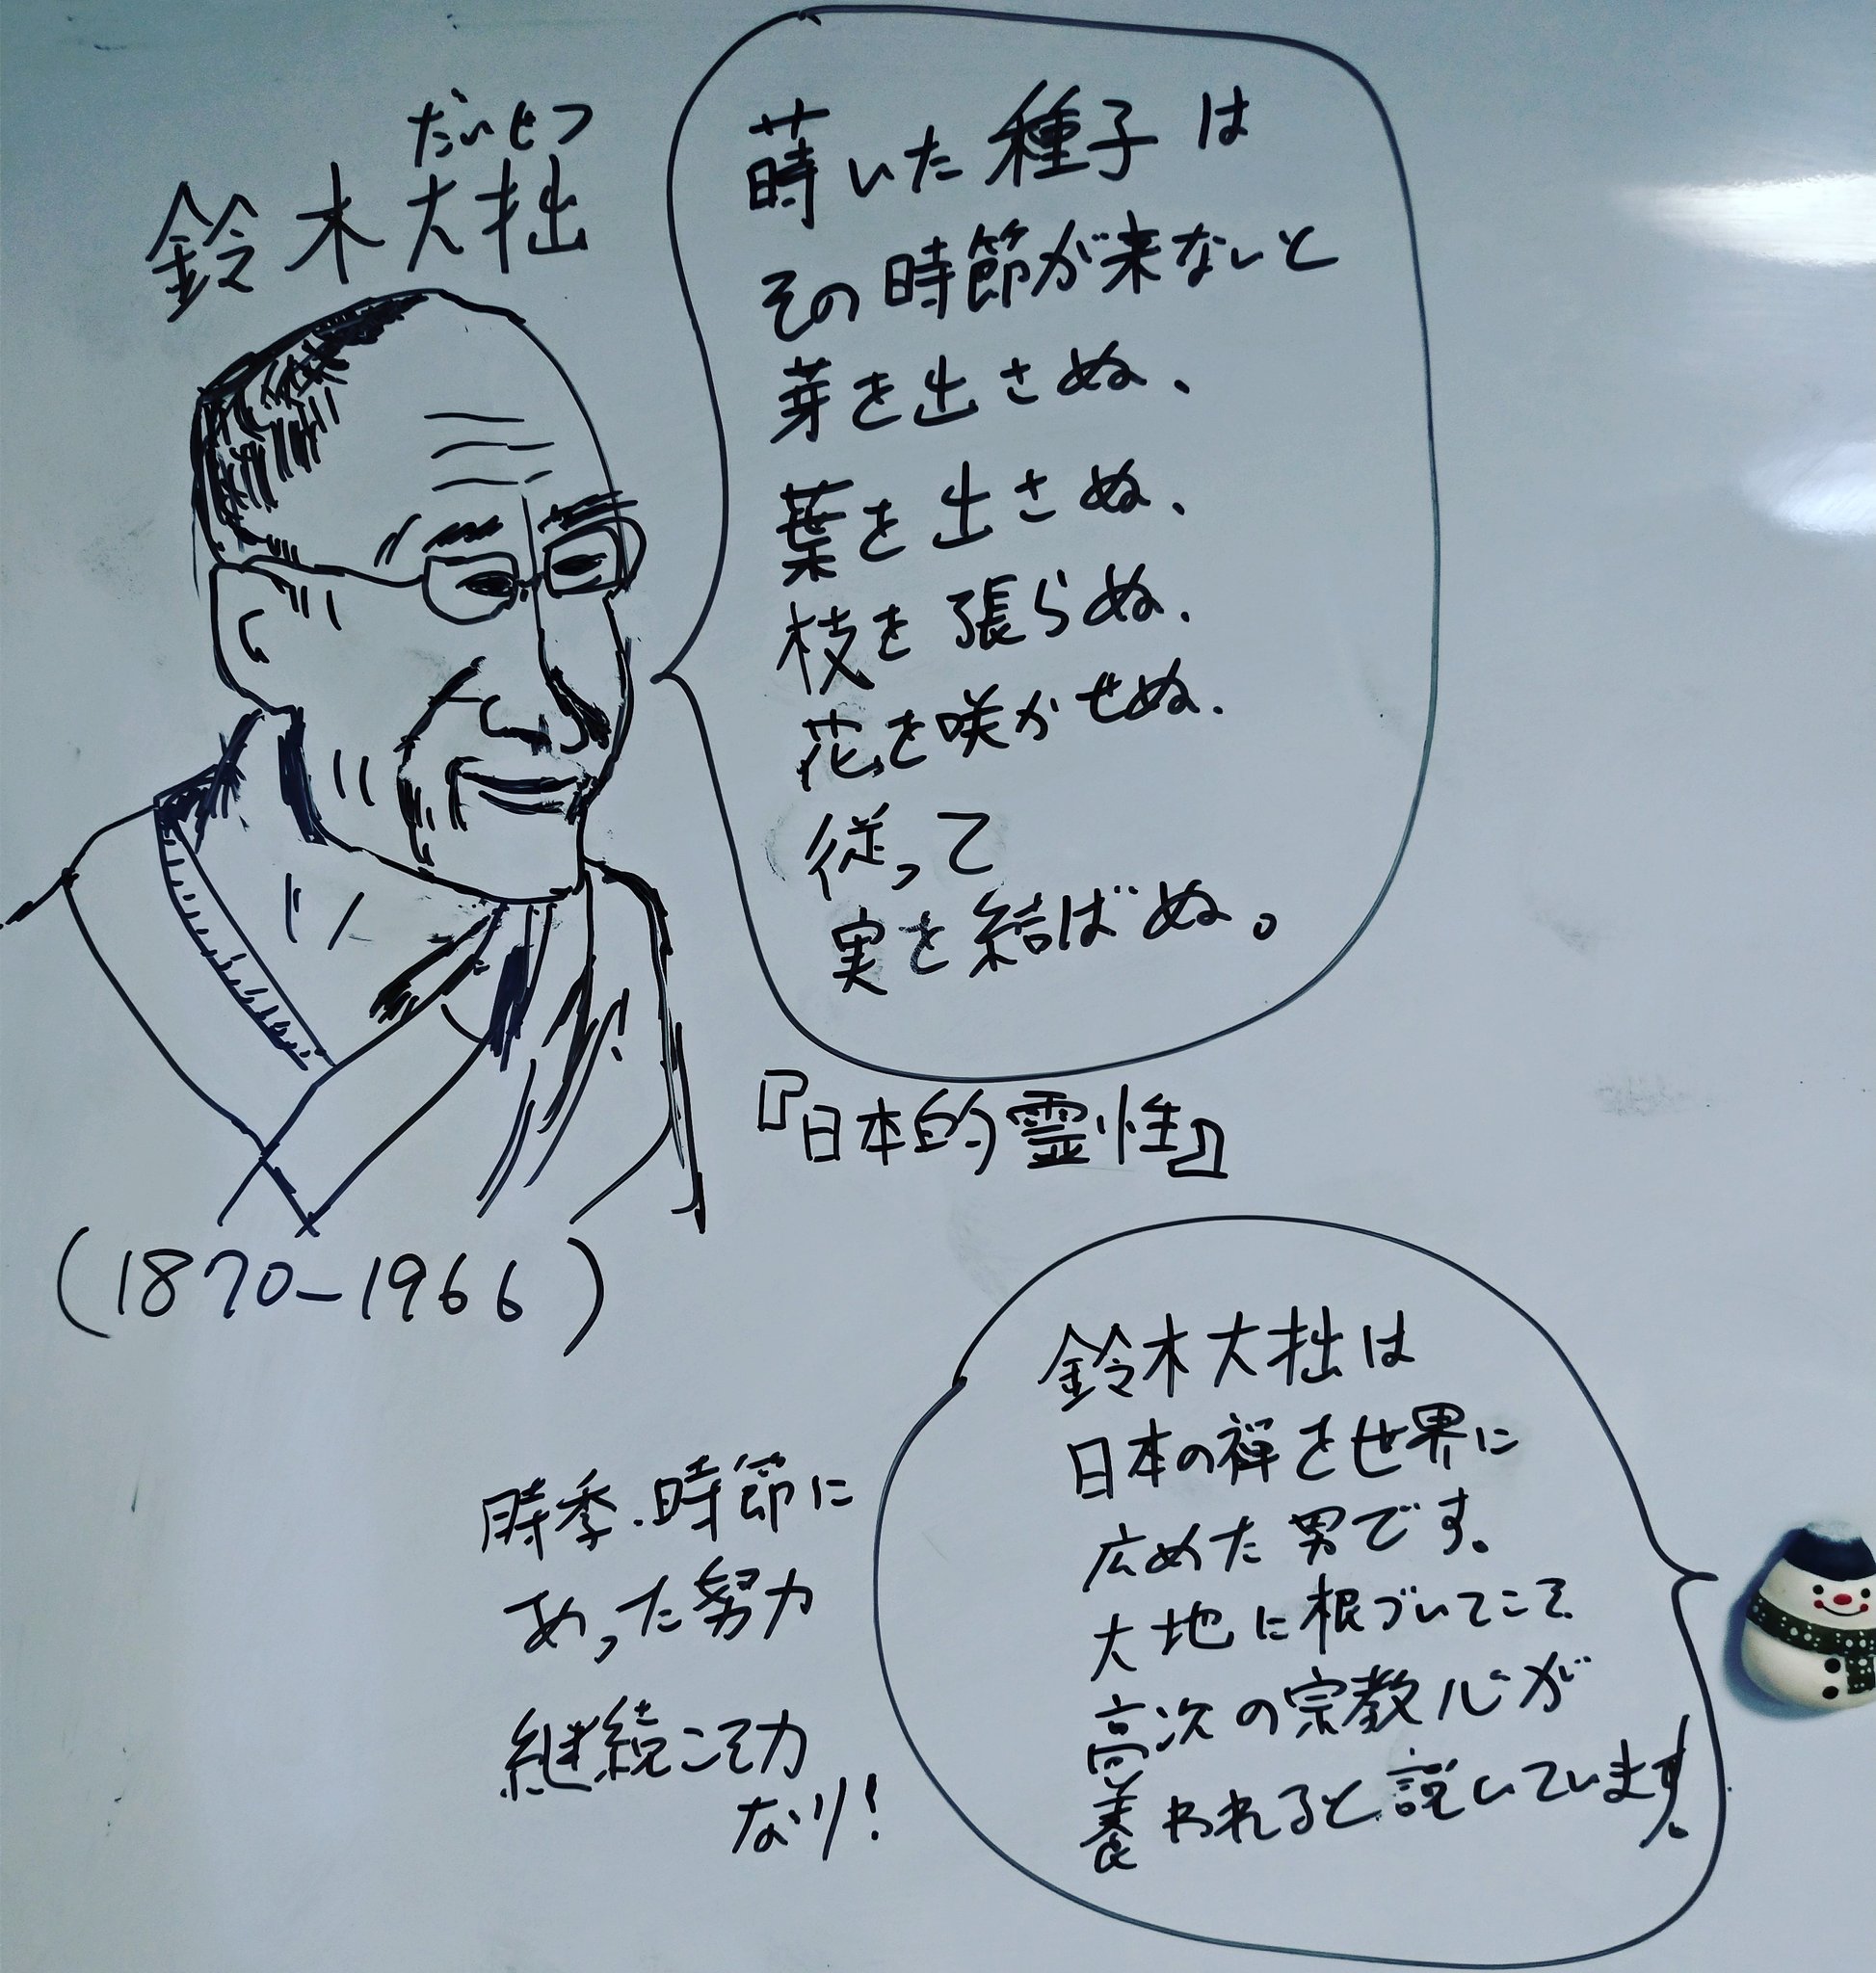 だいせつ
鈴木大拙
蒔いた種子は
その時節が来ないと
芽を出さぬ、
葉を出さぬ、
枝を張らぬ、
花を咲かせぬ、
従って
実を結ばぬ。
『日本的霊性』
(1870-1966)
鈴木大拙は
日本の禅を世界に
広めた男です。
大地に根づいてこそ
高次の宗教心が
養われると説いています。
時季・時節に
あった努力
継続こそ力
なり!